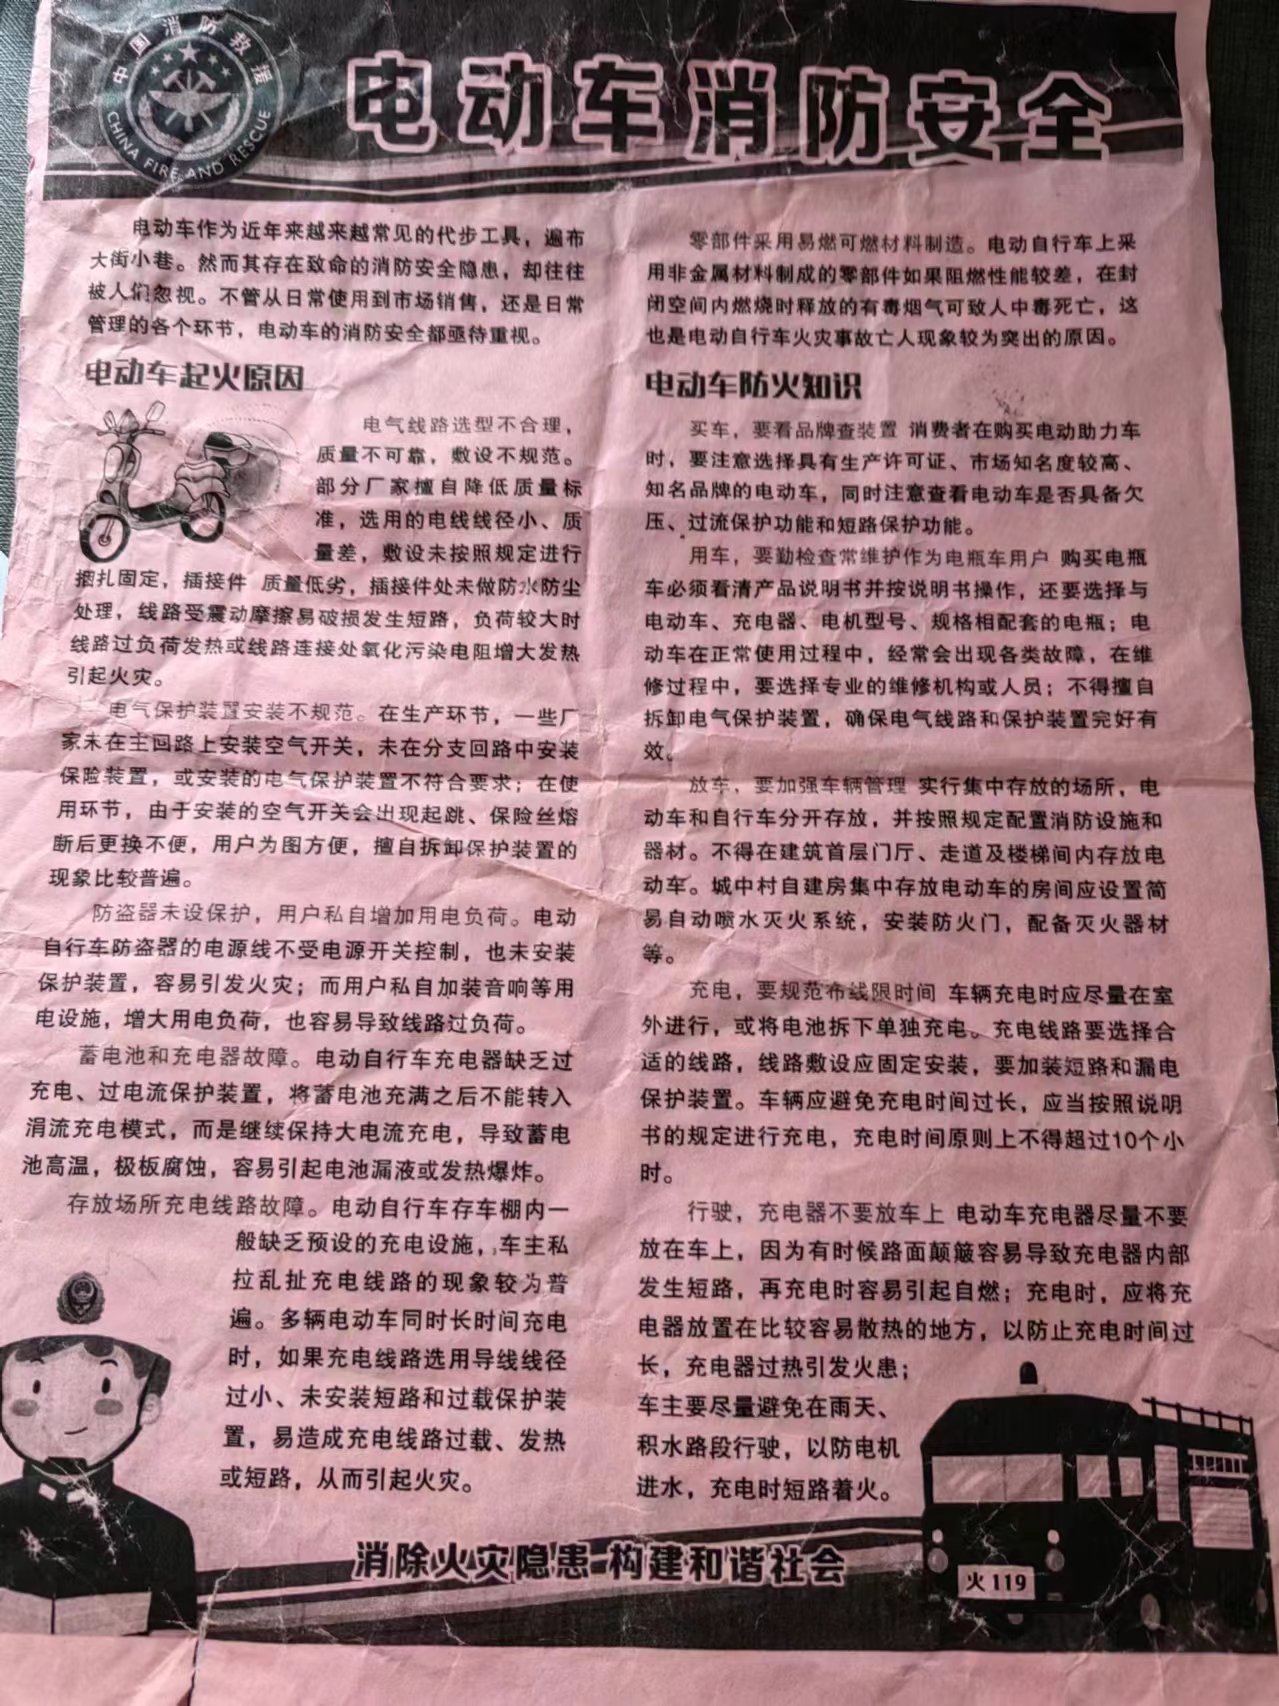 中国消防救援
CHINA FIRE AND RESCUE
电动车消防安全
电动车作为近年来越来越常见的代步工具，遍布
大街小巷。然而其存在致命的消防安全隐患，却往往
被人们忽视。不管从日常使用到市场销售，还是日常
管理的各个环节，电动车的消防安全都亟待重视。
电动车起火原因
电气线路选型不合理，
质量不可靠，敷设不规范。
部分厂家擅自降低质量标
准，选用的电线线径小、质
量差，敷设未按照规定进行
捆扎固定，插接件 质量低劣，插接件处未做防水防尘
处理，线路受震动摩擦易破损发生短路，负荷较大时
线路过负荷发热或线路连接处氧化污染电阻增大发热
引起火灾。
电气保护装置安装不规范。在生产环节，一些厂
家未在主回路上安装空气开关，未在分支回路中安装
保险装置，或安装的电气保护装置不符合要求；在使
用环节，由于安装的空气开关会出现起跳、保险丝熔
断后更换不便，用户为图方便，擅自拆卸保护装置的
现象比较普遍。
防盗器未设保护，用户私自增加用电负荷。电动
自行车防盗器的电源线不受电源开关控制，也未安装
保护装置，容易引发火灾；而用户私自加装音响等用
电设施，增大用电负荷，也容易导致线路过负荷。
蓄电池和充电器故障。电动自行车充电器缺乏过
充电、过电流保护装置，将蓄电池充满之后不能转入
涓流充电模式，而是继续保持大电流充电，导致蓄电
池高温，极板腐蚀，容易引起电池漏液或发热爆炸。
存放场所充电线路故障。电动自行车存车棚内一
般缺乏预设的充电设施，车主私
拉乱扯充电线路的现象较为普
遍。多辆电动车同时长时间充电
时，如果充电线路选用导线线径
过小、未安装短路和过载保护装
置，易造成充电线路过载、发热
或短路，从而引起火灾。
零部件采用易燃可燃材料制造。电动自行车上采
用非金属材料制成的零部件如果阻燃性能较差，在封
闭空间内燃烧时释放的有毒烟气可致人中毒死亡，这
也是电动自行车火灾事故亡人现象较为突出的原因。
电动车防火知识
买车，要看品牌查装置 消费者在购买电动助力车
时，要注意选择具有生产许可证、市场知名度较高、
知名品牌的电动车，同时注意查看电动车是否具备欠
压、过流保护功能和短路保护功能。
用车，要勤检查常维护作为电瓶车用户 购买电瓶
车必须看清产品说明书并按说明书操作，还要选择与
电动车、充电器、电机型号、规格相配套的电瓶；电
动车在正常使用过程中，经常会出现各类故障，在维
修过程中，要选择专业的维修机构或人员；不得擅自
拆卸电气保护装置，确保电气线路和保护装置完好有
效。
放车，要加强车辆管理 实行集中存放的场所，电
动车和自行车分开存放，并按照规定配置消防设施和
器材。不得在建筑首层门厅、走道及楼梯间内存放电
动车。城中村自建房集中存放电动车的房间应设置简
易自动喷水灭火系统，安装防火门，配备灭火器材
等。
充电，要规范布线限时间 车辆充电时应尽量在室
外进行，或将电池拆下单独充电。充电线路要选择合
适的线路，线路敷设应固定安装，要加装短路和漏电
保护装置。车辆应避免充电时间过长，应当按照说明
书的规定进行充电，充电时间原则上不得超过10个小
时。
行驶，充电器不要放车上 电动车充电器尽量不要
放在车上，因为有时候路面颠簸容易导致充电器内部
发生短路，再充电时容易引起自燃；充电时，应将充
电器放置在比较容易散热的地方，以防止充电时间过
长，充电器过热引发火患；
车主要尽量避免在雨天、
积水路段行驶，以防电机
进水，充电时短路着火。
消除火灾隐患 构建和谐社会
火 119